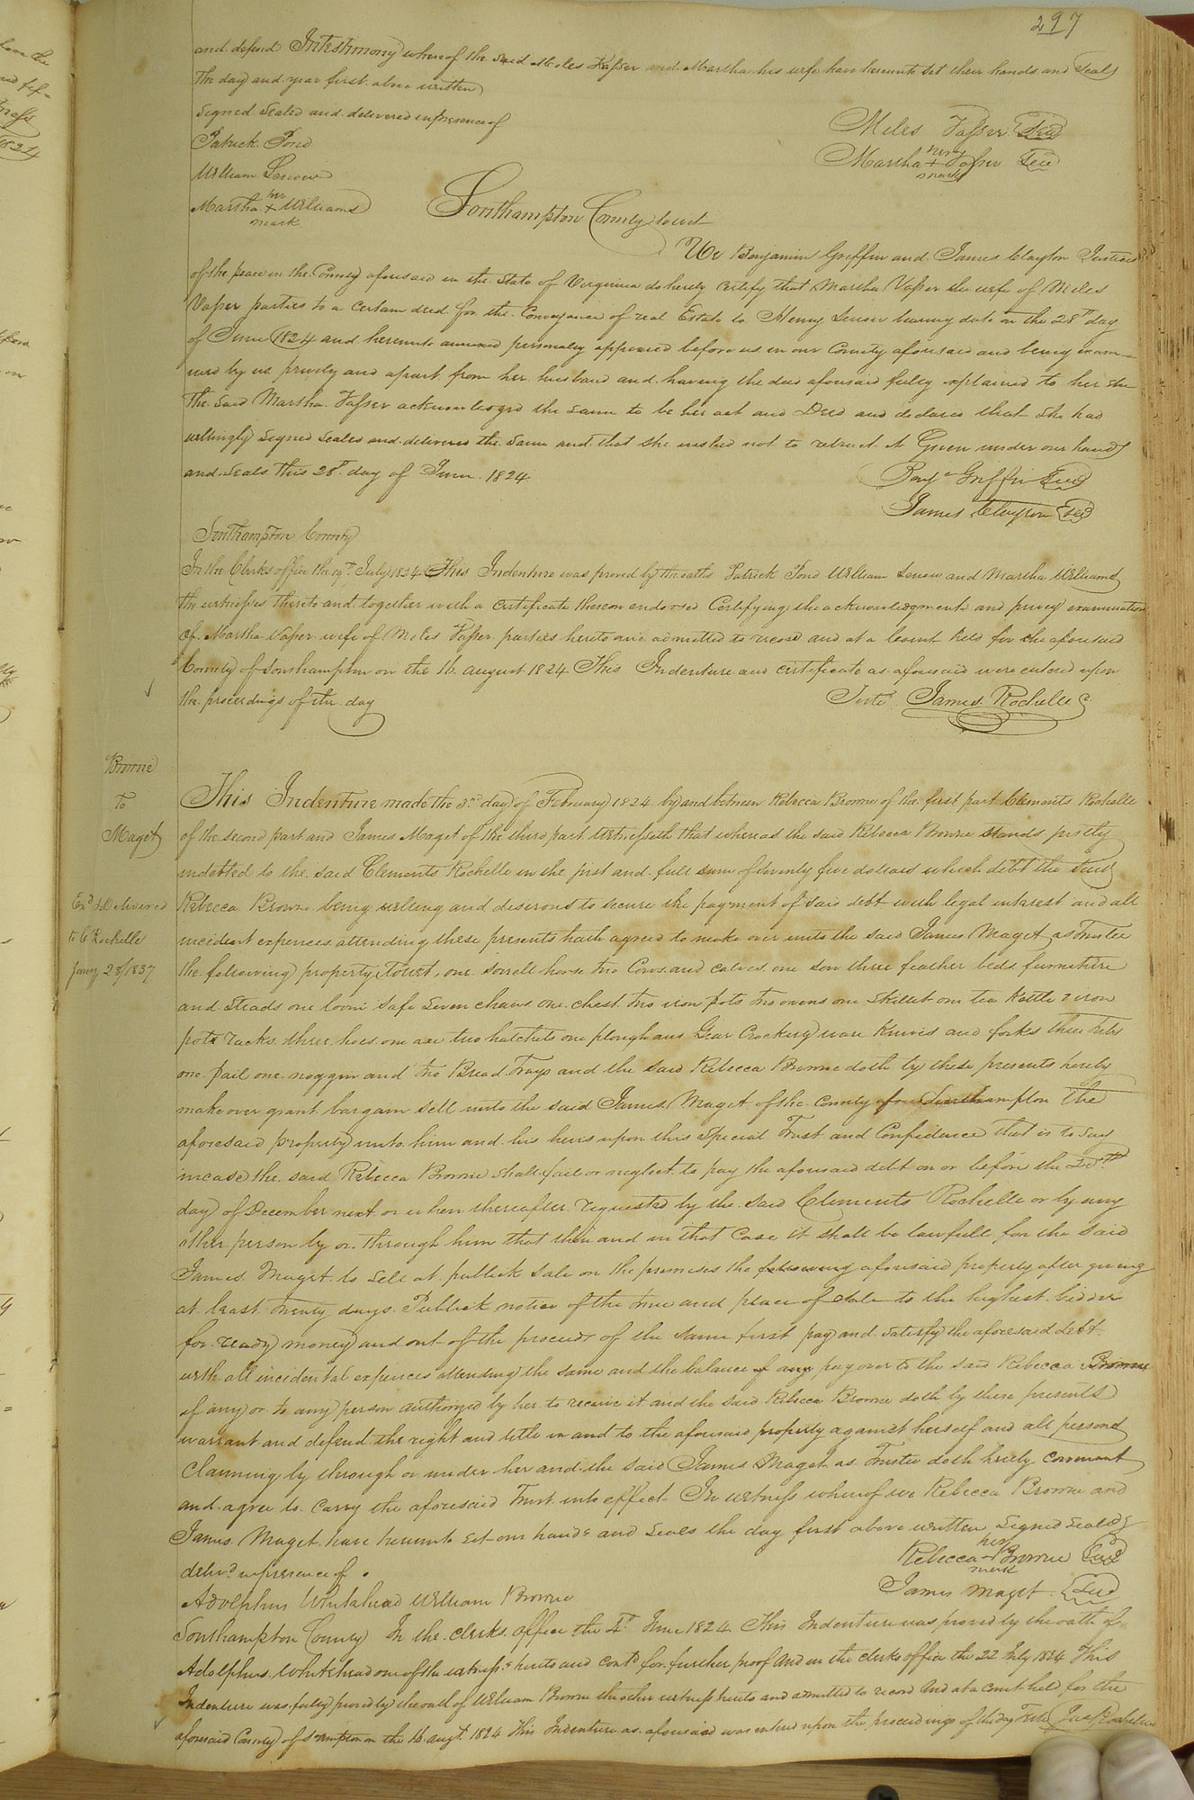 297
and defend Intestimony whereof the said Miles Vasser and Martha his wife have hereunto set their hands and Seals
the day and year first above written
Signed Sealed and delivered in presence of
Miles Vasser Seal
Patrick Pond
Martha her + mark Vasser Seal
William
Martha her + mark Williams
Southampton County Court
We Benjamin Griffin and James Clayton Justices
of the peace in the County aforesaid in the State of Virginia do hereby certify that Martha Vasser the wife of Miles
Vasser parties to a certain deed for the Conveyance of real Estate to Henry bearing date on the 28th day
of June 1824 and hereunto annexed personally appeared before us in our County aforesaid and being exam-
ined by us privily and apart from her husband and having the deed aforesaid fully explained to her she
the said Martha Vasser acknowledged the same to be her act and Deed and declared that she had
willingly signed sealed and delivered the same and that she wished not to retract it Given under our hands
and seals this 28th day of June 1824
Benjn Griffin Seal
James Clayton Seal
Southampton County
In the Clerks office the 19th July 1824 This Indenture was proved by the oaths Patrick Pond William and Martha Williams
the witnesses thereto and together with a certificate thereon endorsed Certifying the acknowledgment and privy examination
of Martha Vasser wife of Miles Vasser parties hereto and admitted to record and at a Court held for the aforesaid
County of Southampton on the 16 August 1824 This Indenture and certificate as aforesaid were entered upon
the proceedings of the day
Teste James Rochelle
Browne
to
Maget
Exd & delivered
to C Rochelle
Jany 28/1837
This Indenture made the 3rd day of February 1824 by and between Rebecca Browne of the first part Clements Rochelle
of the second part and James Maget of the third part Witnesseth that whereas the said Rebecca Browne stands justly
indebted to the said Clements Rochelle in the just and full sum of seventy five dollars which debt the said
Rebecca Browne being willing and desirous to secure the payment of said debt with legal interest and all
incident expences attending these presents hath agreed to make over unto the said James Maget as Trustee
the following property Towit, one sorrell horse two Cows and calves one sow three feather beds furniture
and steads one loom safe seven chairs one chest two iron pots two ovens one skillet one tea kettle 2 iron
pott racks three hoes one axe two hatchets one plough and Gear Crockery ware knives and forks three tubs
one pail one noggin and two Bread Trays and the said Rebecca Browne doth by these presents hereby
make over grant bargain sell unto the said James Maget of the county of Southampton the
aforesaid property unto him and his heirs upon this special Trust and Confidence that is to say
incase the said Rebecca Browne shall fail or neglect to pay the aforesaid debt on or before the
day of December next or when thereafter requested by the said Clements Rochelle or by any
other person by or through him that then and in that case it shall be lawfull for the said
James Maget to sell at publick sale on the premises the following aforesaid property after giving
at least twenty days Publick notice of the time and place of sale to the highest bidder
for ready money and out of the proceeds of the same first pay and satisfy the aforesaid debt
with all incidental expences attending the same and the balance if any pay over to the said Rebecca Browne
if any or to any person authorized by her to receive it and the said Rebecca Browne doth by these presents
warrant and defend the right and title in and to the aforesaid property against herself and all persons
Claiming by through or under her and the said James Maget as Trustee doth hereby covenant
and agree to carry the aforesaid Trust into effect In witness whereof we Rebecca Browne and
James Maget have hereunto set our hands and seals the day first above written Signed Sealed &
delivd in presence of
Rebecca her mark Browne Seal
James Maget Seal
Adolphus Whitehead William Browne
Southampton County In the clerks office the 4th June 1824 This Indenture was proved by the oath of
Adolphus Whitehead one of the witnesses hereto and contd for further proof And in the clerks office the 22 July 1824 This
Indenture was fully proved by the oath of William Browne the other witness hereto and admitted to record And at a court held for the
aforesaid County of Shampton on the 16 augt 1824 This Indenture as aforesaid was entered upon the proceedings of the day Teste Jas Rochelle